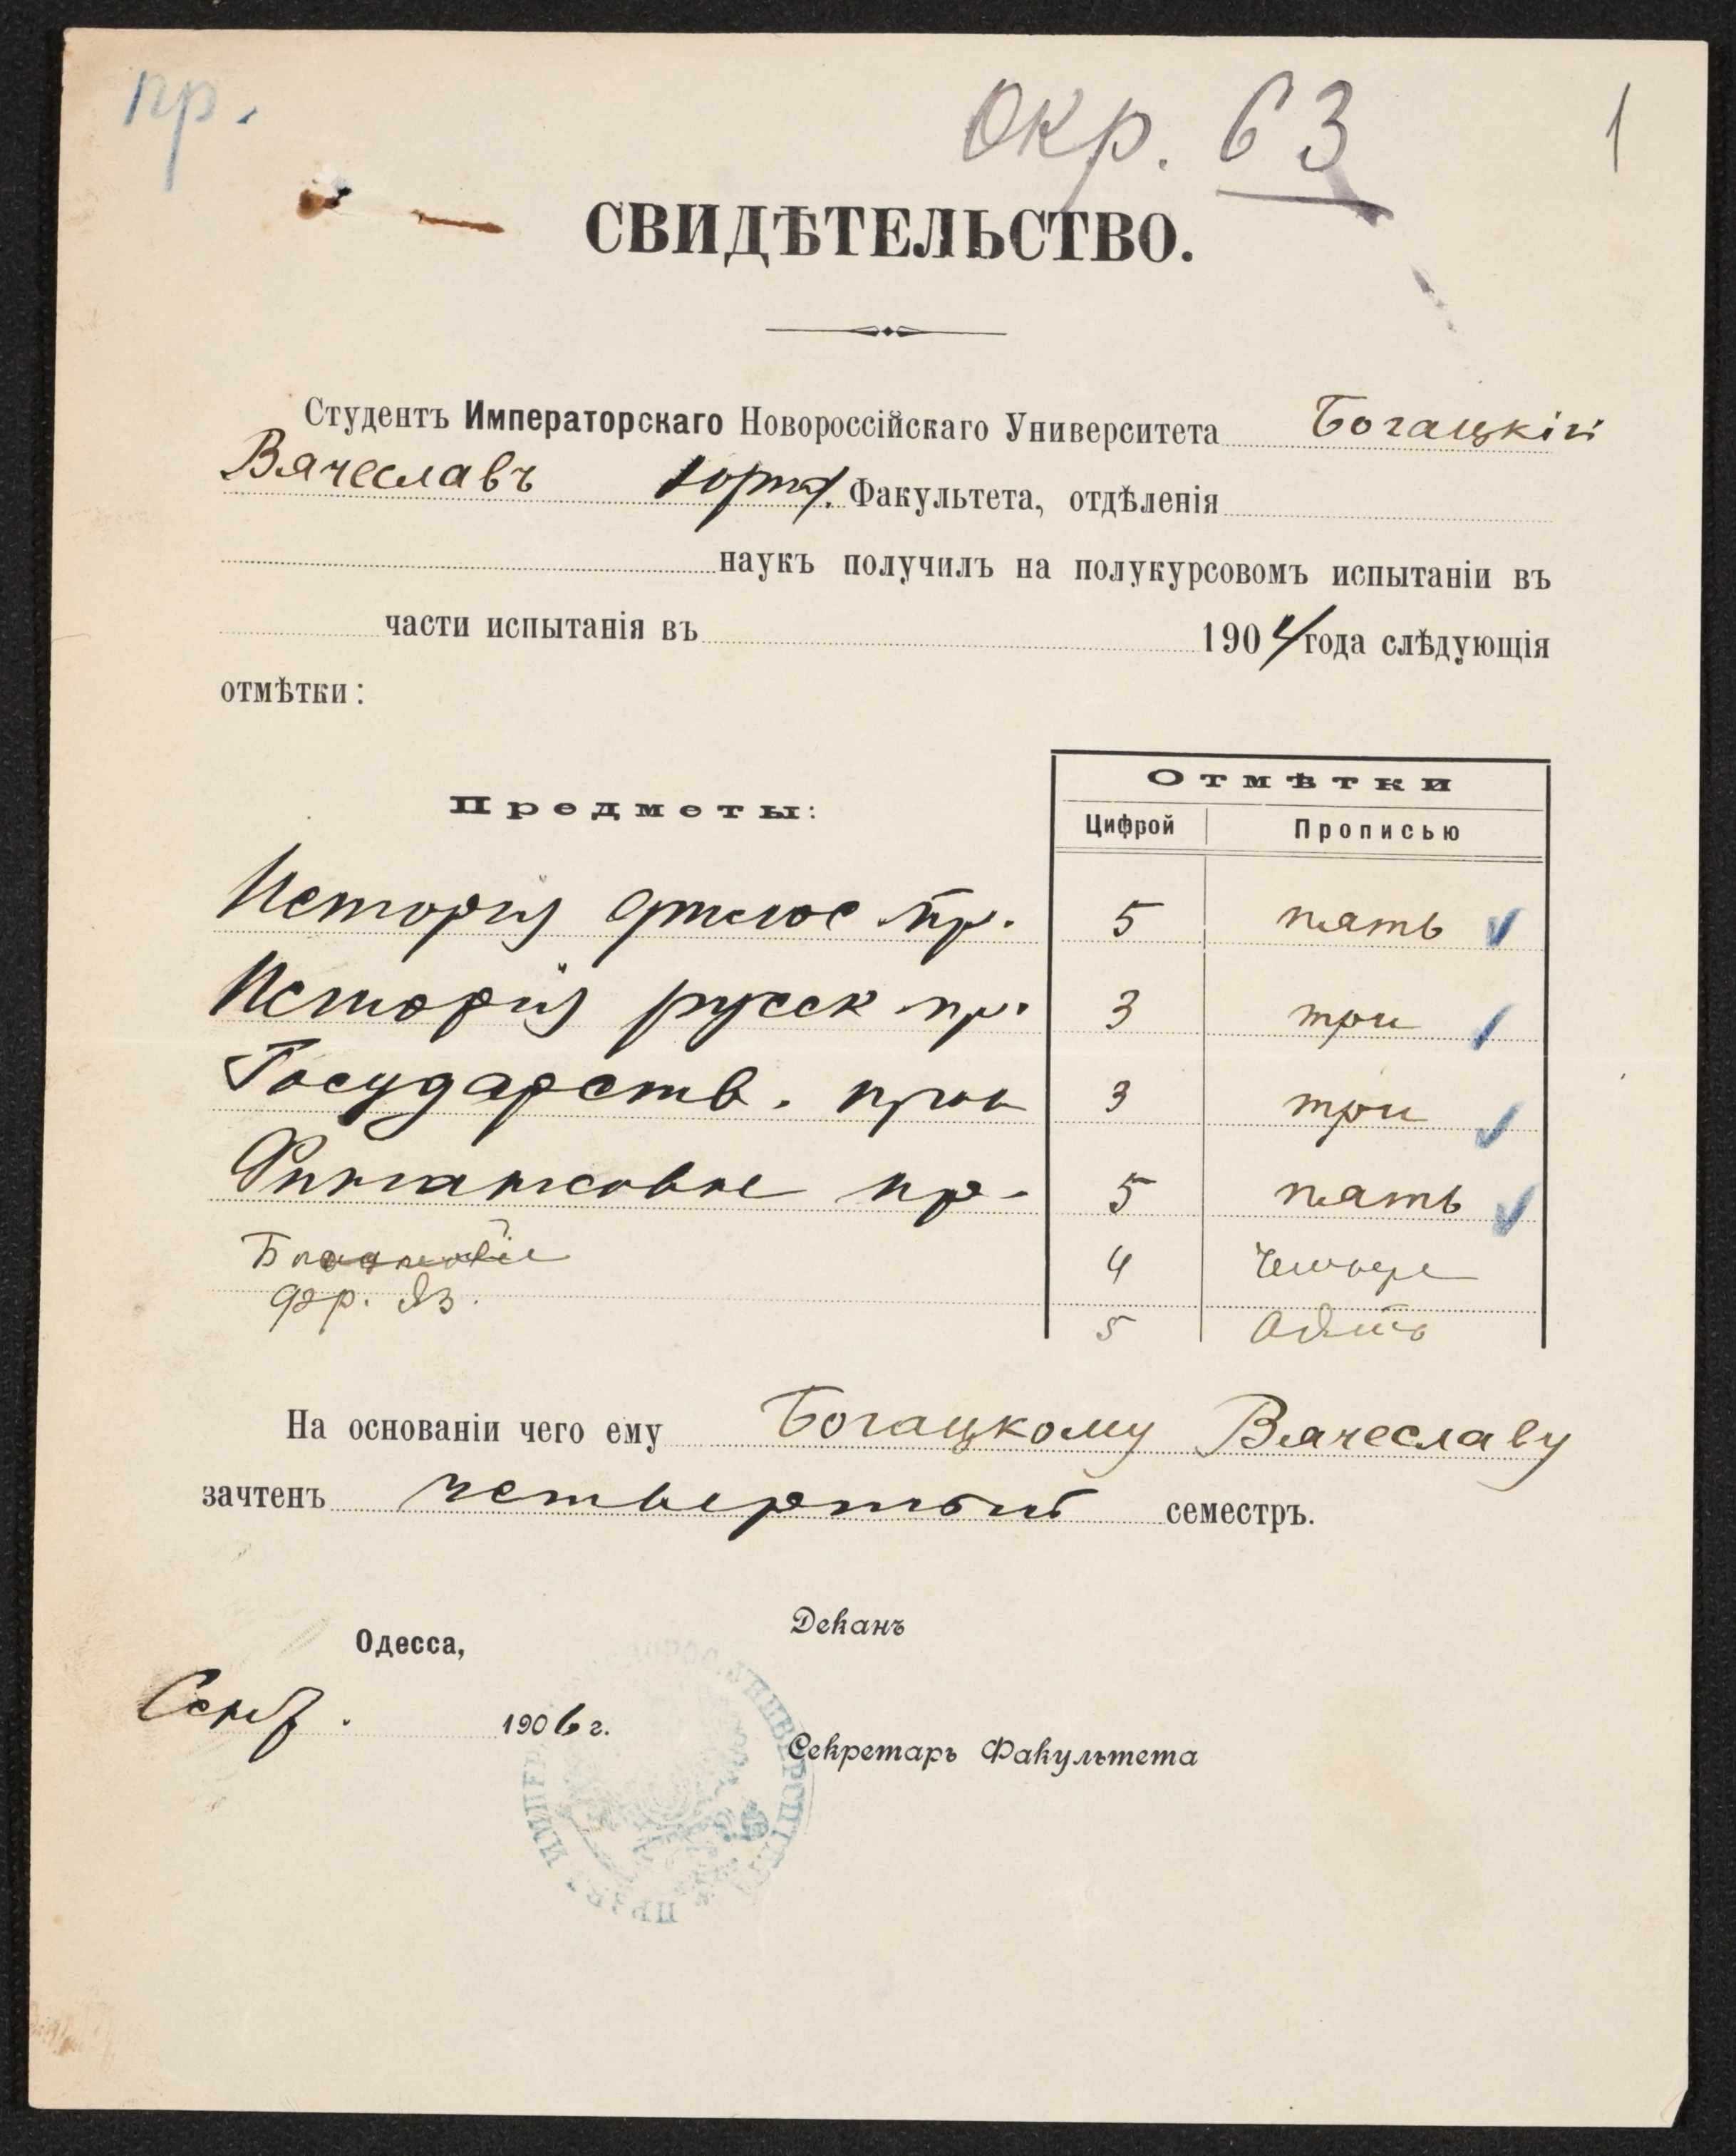 пр.
Окр. 63
1
СВИДѢТЕЛЬСТВО.
Студентъ Императорскаго Новороссійскаго Университета Богацкій
Вячеславъ Факультета, отдѣленія
наукъ получилъ на полукурсовомъ испытаніи въ
части испытанія въ 1904 года слѣдующія
отмѣтки:
Отмѣтки
Предметы:
Цифрой Прописью
Исторія пр. 5 пять
Исторія русск пр. 3 три
Государств. 3 три
Финансовое пр. 5 пять
4 четыре
фр. яз.
5
На основаніи чего ему Богацкому Вячеславу
зачтенъ четвертый семестръ.
Деканъ
Одесса,
Сент. 1906 г.
Секретарь Факультета